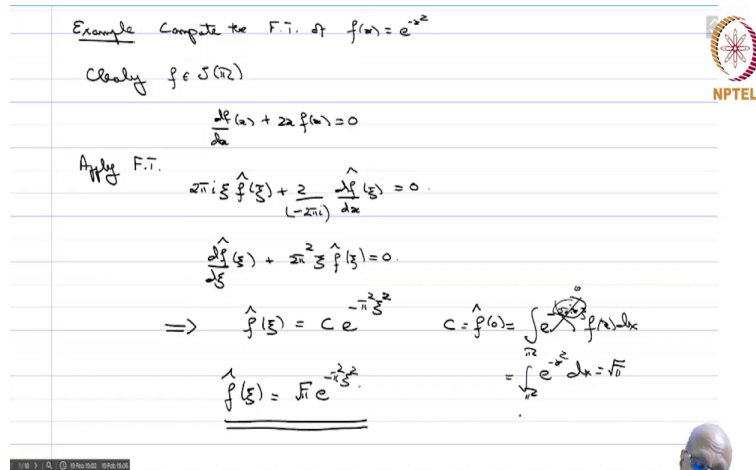 Example Compute the F.T. of f(x) = e^{-x^2}
Clearly f ∈ S(ℝ)
df/dx (x) + 2x f(x) = 0
Apply F.T.
2πiξ f̂(ξ) + 2/(-2πi) df̂/dx (ξ) = 0.
df̂/dξ (ξ) + 2π^2 ξ f̂(ξ) = 0.
⇒ f̂(ξ) = C e^{-π^2 ξ^2}
C = f̂(0) = ∫_ℝ f(x) dx
= ∫_ℝ e^{-x^2} dx = √π
f̂(ξ) = √π e^{-π^2 ξ^2}.
NPTEL